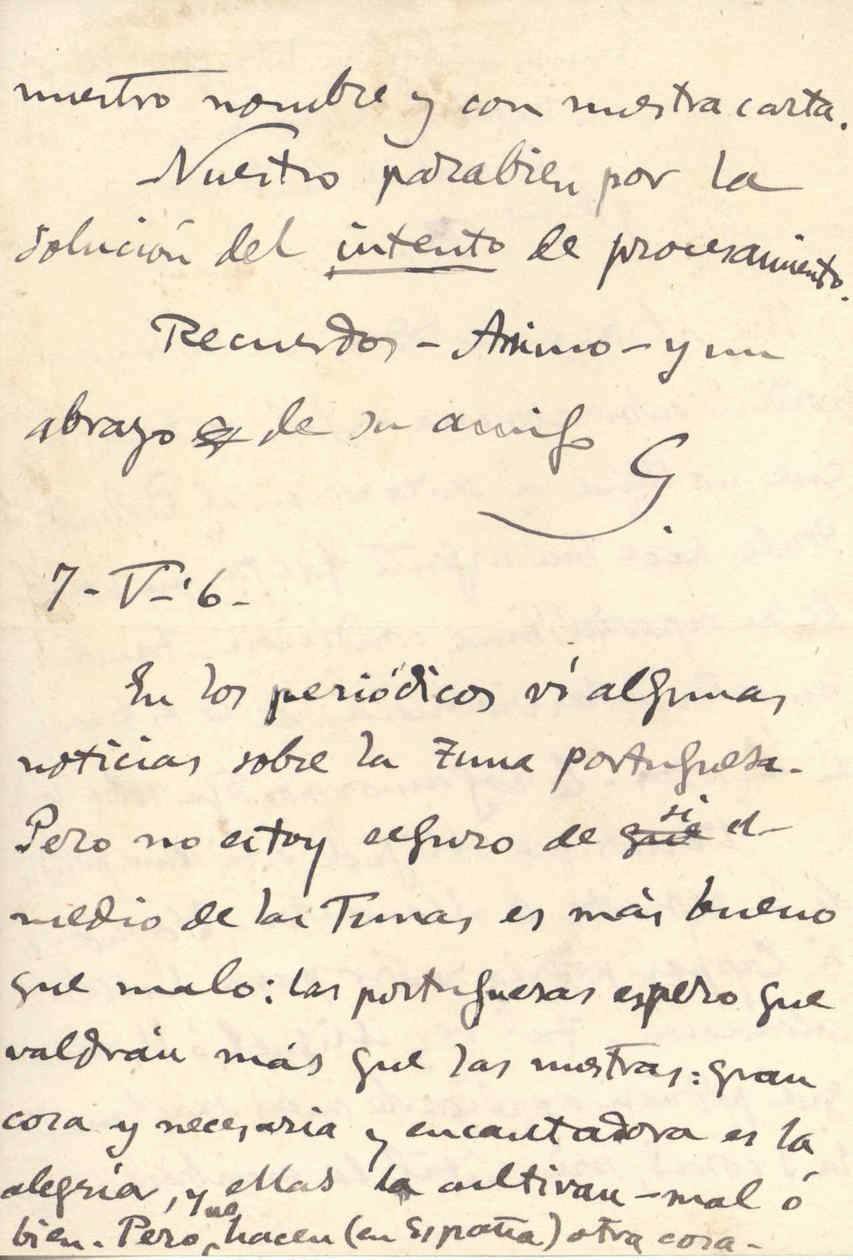 nuestro nombre y con nuestra carta.
Nuestro parabien por la
solución del intento de procesamiento.
Recuerdos - Animo - y un
abrazo de su amigo
G.
7-V-'6-
En los periódicos ví algunas
noticias sobre la Tuna portuguesa.
Pero no estoy seguro de que si el
medio de las Tunas es más bueno
que malo: las portuguesas espero que
valdrán más que las nuestras: gran
cosa y necesaria y encantadora es la
alegría, y ellas la cultivan - mal ó
bien. Pero que hacen (en España) otra cosa -